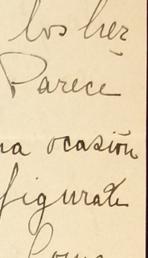 los her
Parece
na ocasión
figurate